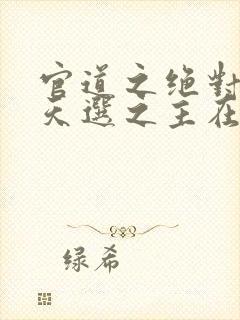 官道之绝對
天選之主在
绿希